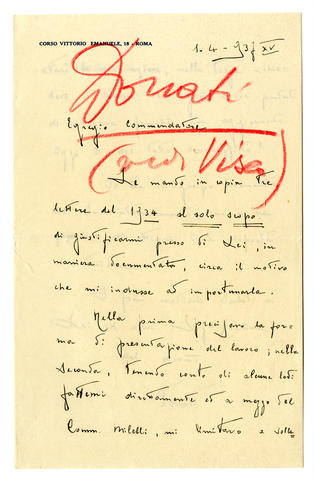 CORSO VITTORIO EMANUELE, 18 - ROMA
1. 4 - 937 XV
Donati
Egregio Commendatore
(vedi Visa)
Le mando in copia tre
lettere del 1934 al solo scopo
di giustificarmi presso di Lei, in
maniera documentata, circa il motivo
che mi indusse ad importunarla.
Nella prima precisavo la for
ma di presentazione del lavoro; nella
seconda, tenendo conto di alcune lodi
fattemi direttamente ed a mezzo del
Comm. Miletti, mi limitavo a